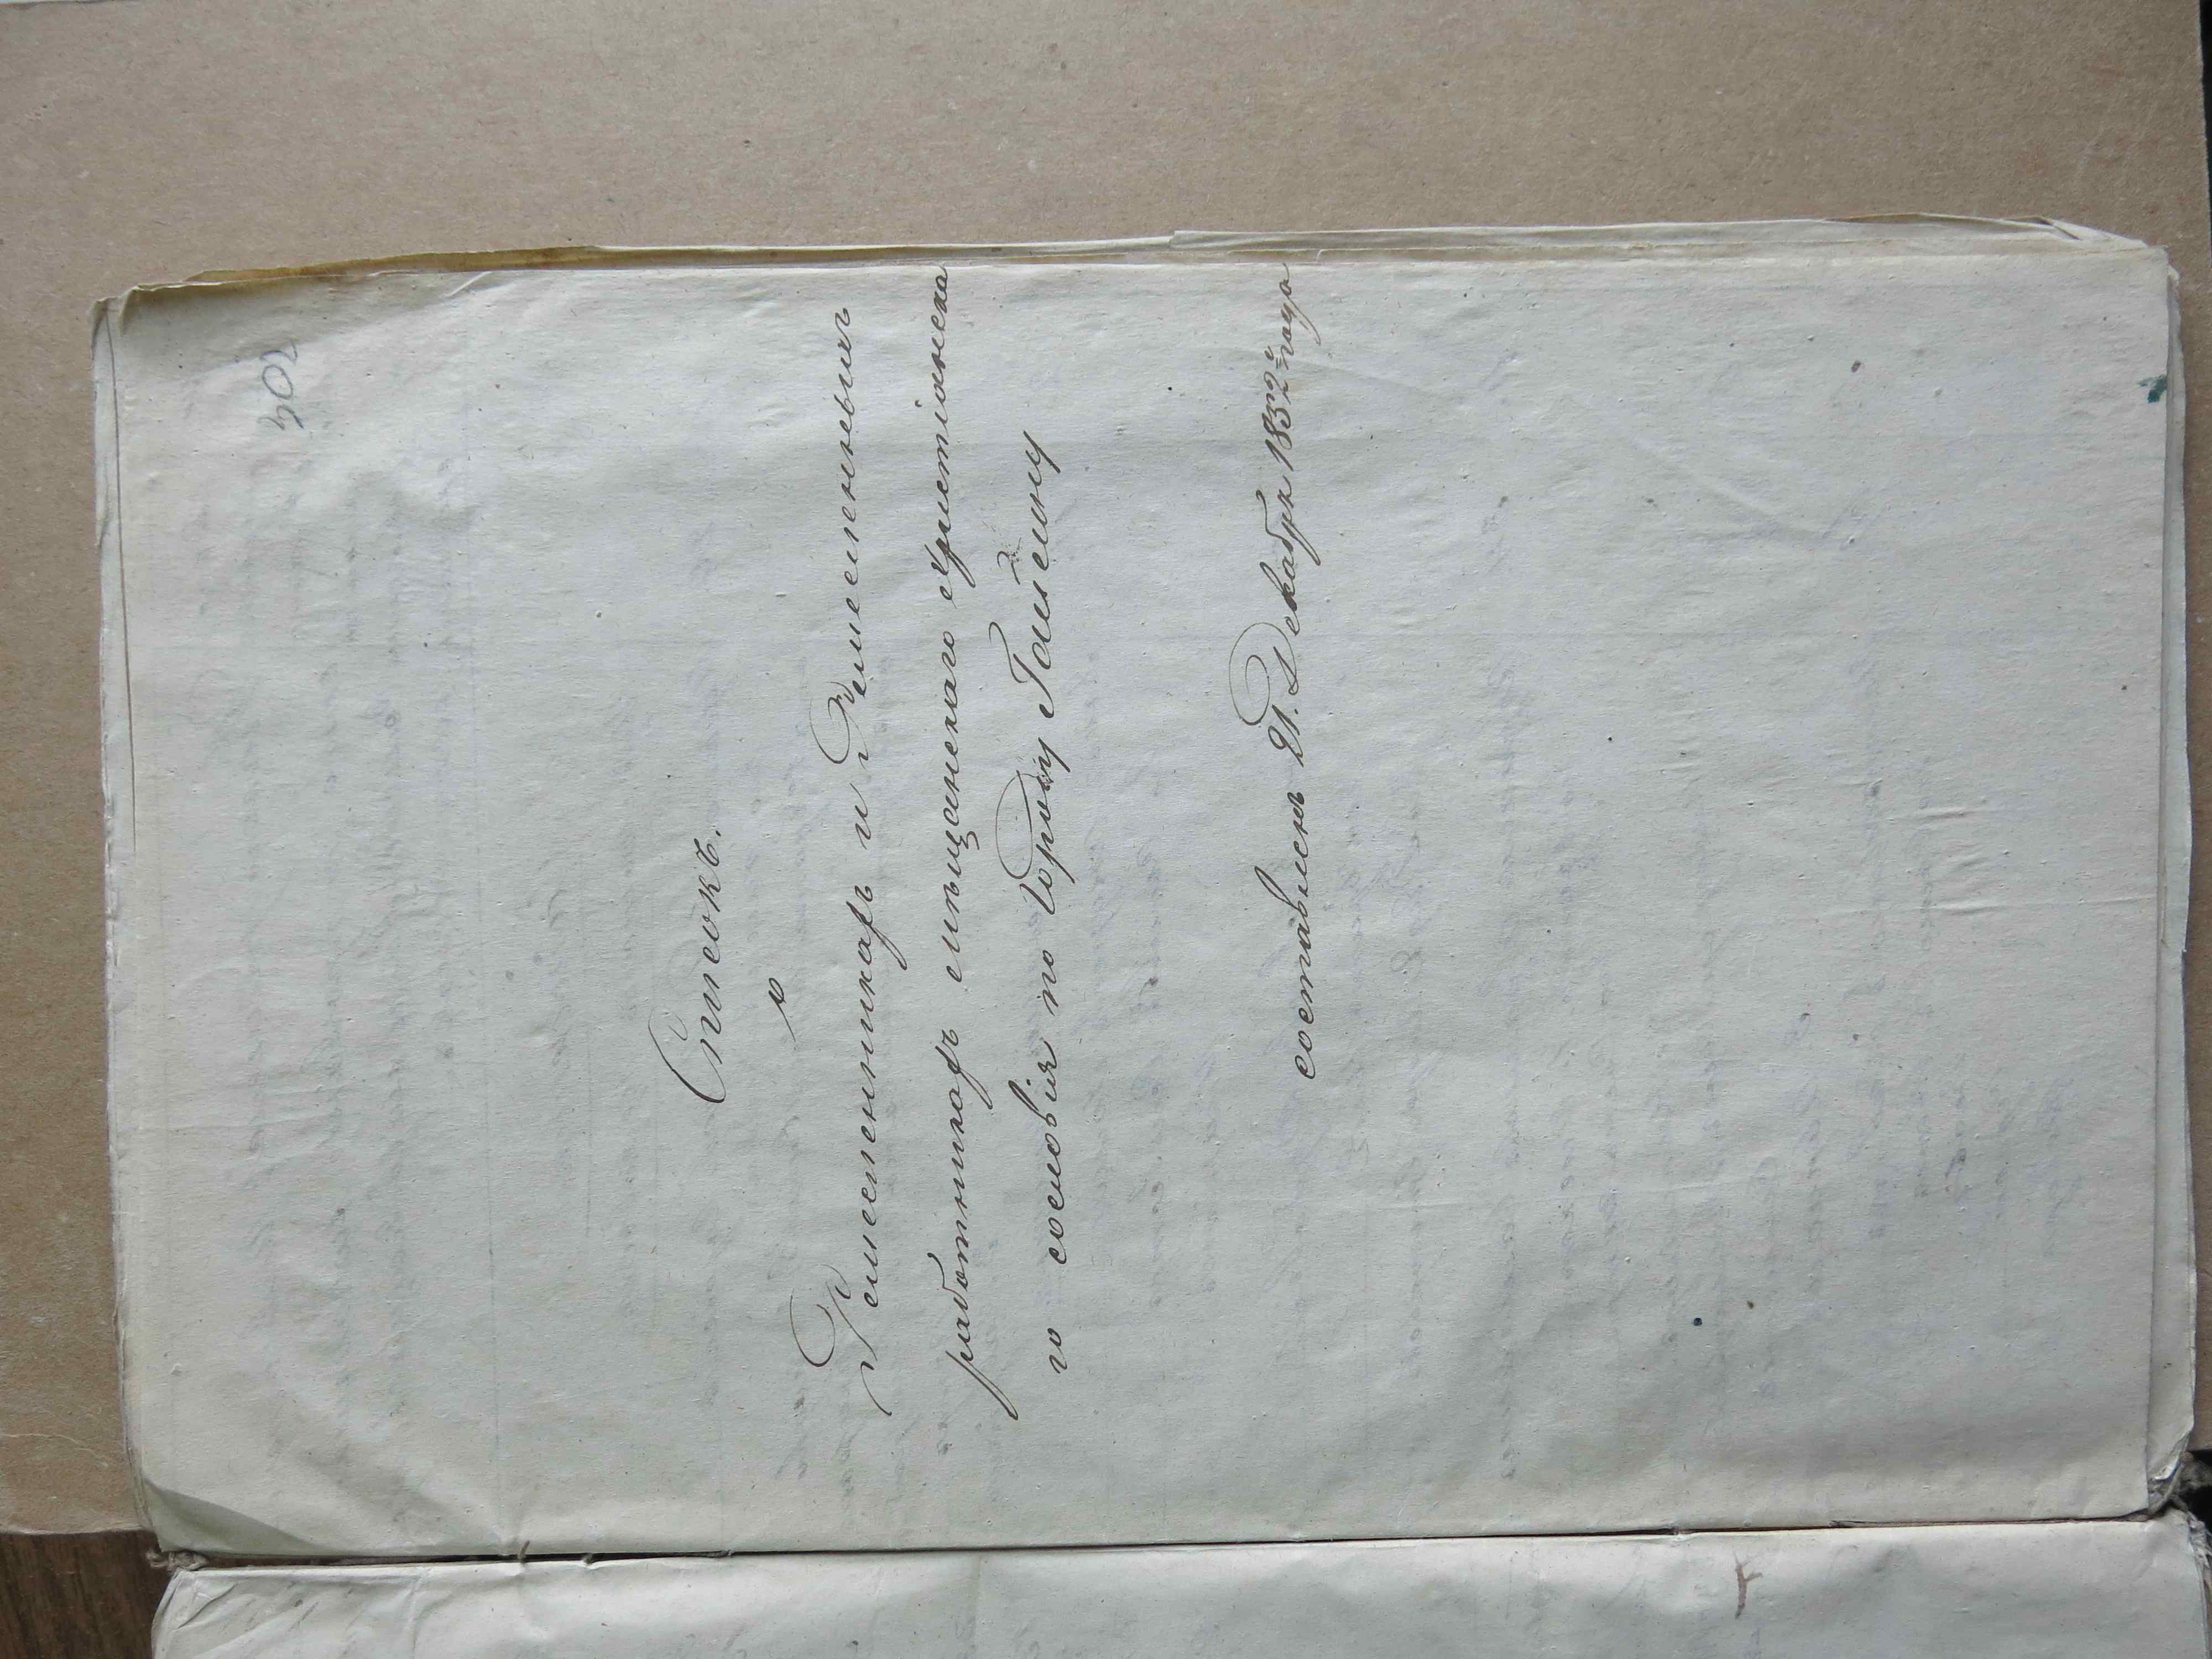 704
Списокъ.
о
Ремесленникахъ и Ремесленныхъ
работникахъ мѣщанскаго христіанска
го сословія по Городу Гомелю
составленъ 21. Декабря 1852 года